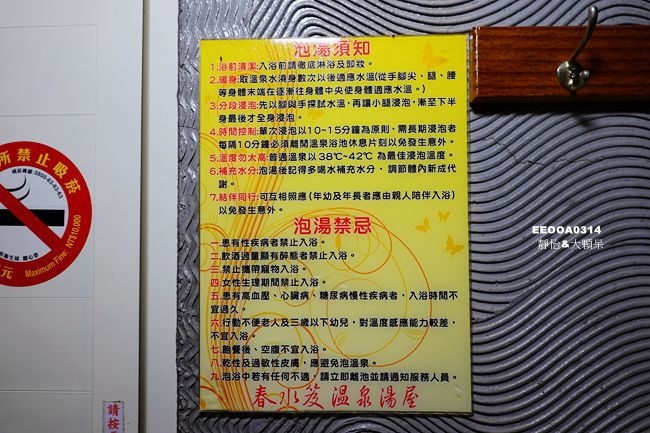 泡湯須知
1.浴前清潔:入浴前請徹底淋浴及卸妝。
2.暖身:取溫泉水澆身數次以後適應水溫(從手腳尖、腿、腰
等身體末端在逐漸往身體中央使身體適應水溫。)
3.分段浸泡:先以腳與手探試水溫,再讓小腿浸泡,漸至下半
身最後才全身浸泡。
4.時間控制:單次浸泡以10~15分鐘為原則,需長期浸泡者
每隔10分鐘必須離開溫泉浴池休息片刻以免發生意外。
5.溫度勿太高:普通溫泉以38℃~42℃ 為最佳浸泡溫度。
6.補充水分:泡湯後記得多喝水補充水分,調節體內新成代
謝。
7.結伴同行:可互相照應(年幼及年長者應由親人陪伴入浴)
以免發生意外。
泡湯禁忌
一.患有性疾病者禁止入浴。
二.飲酒過量顯有醉態者禁止入浴。
三.禁止攜帶寵物入浴。
四.女性生理期間禁止入浴。
五.患有高血壓、心臟病、糖尿病慢性疾病者,入浴時間不
宜過久。
六.行動不便老人及三歲以下幼兒,對溫度感應能力較差,
不宜入浴。
七.飽餐後、空腹不宜入浴。
八.乾性及過敏性皮膚,應避免泡溫泉。
九.泡浴中若有任何不適,請立即離池並請通知服務人員。
春水笈溫泉湯屋
所禁止吸菸
0800-636363
Maximum Fine: NT$10,000
元
請按
EEOOA0314
靜怡&大顆呆